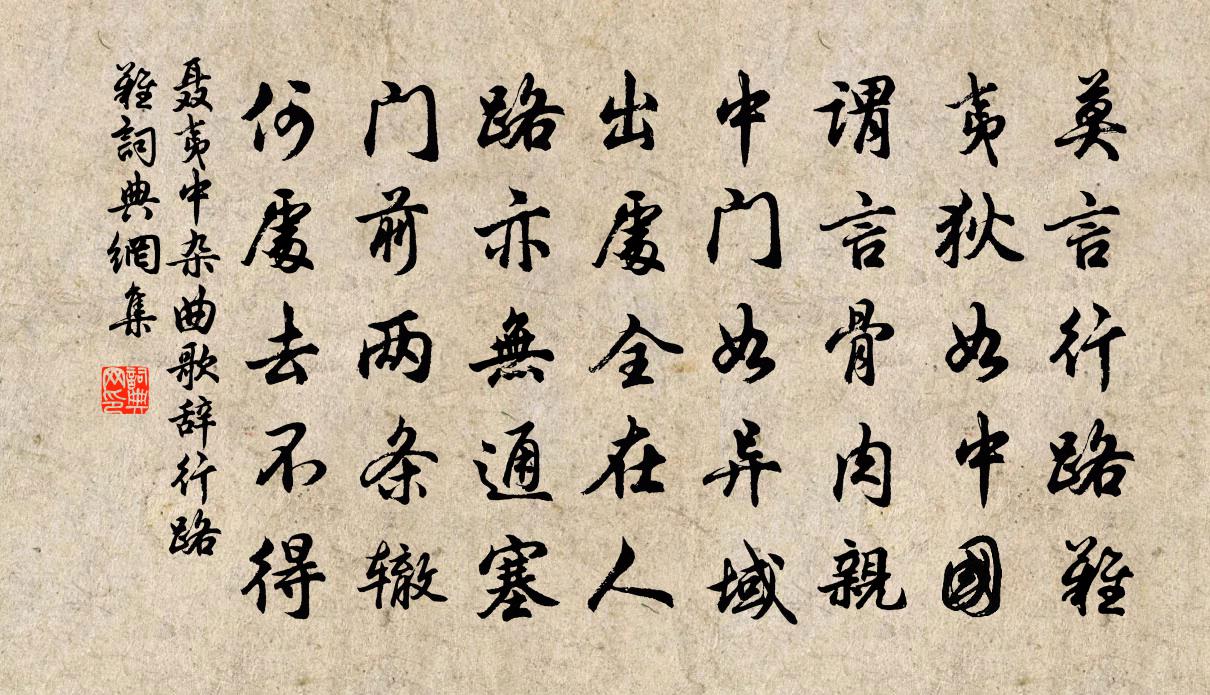 莫言行路難
夷狄如中國
謂言骨肉親
中门如异域
出處全在人
路亦無通塞
门前两条辙
何處去不得
聂夷中杂曲歌辞行路
難詞典網集
詞典
网印